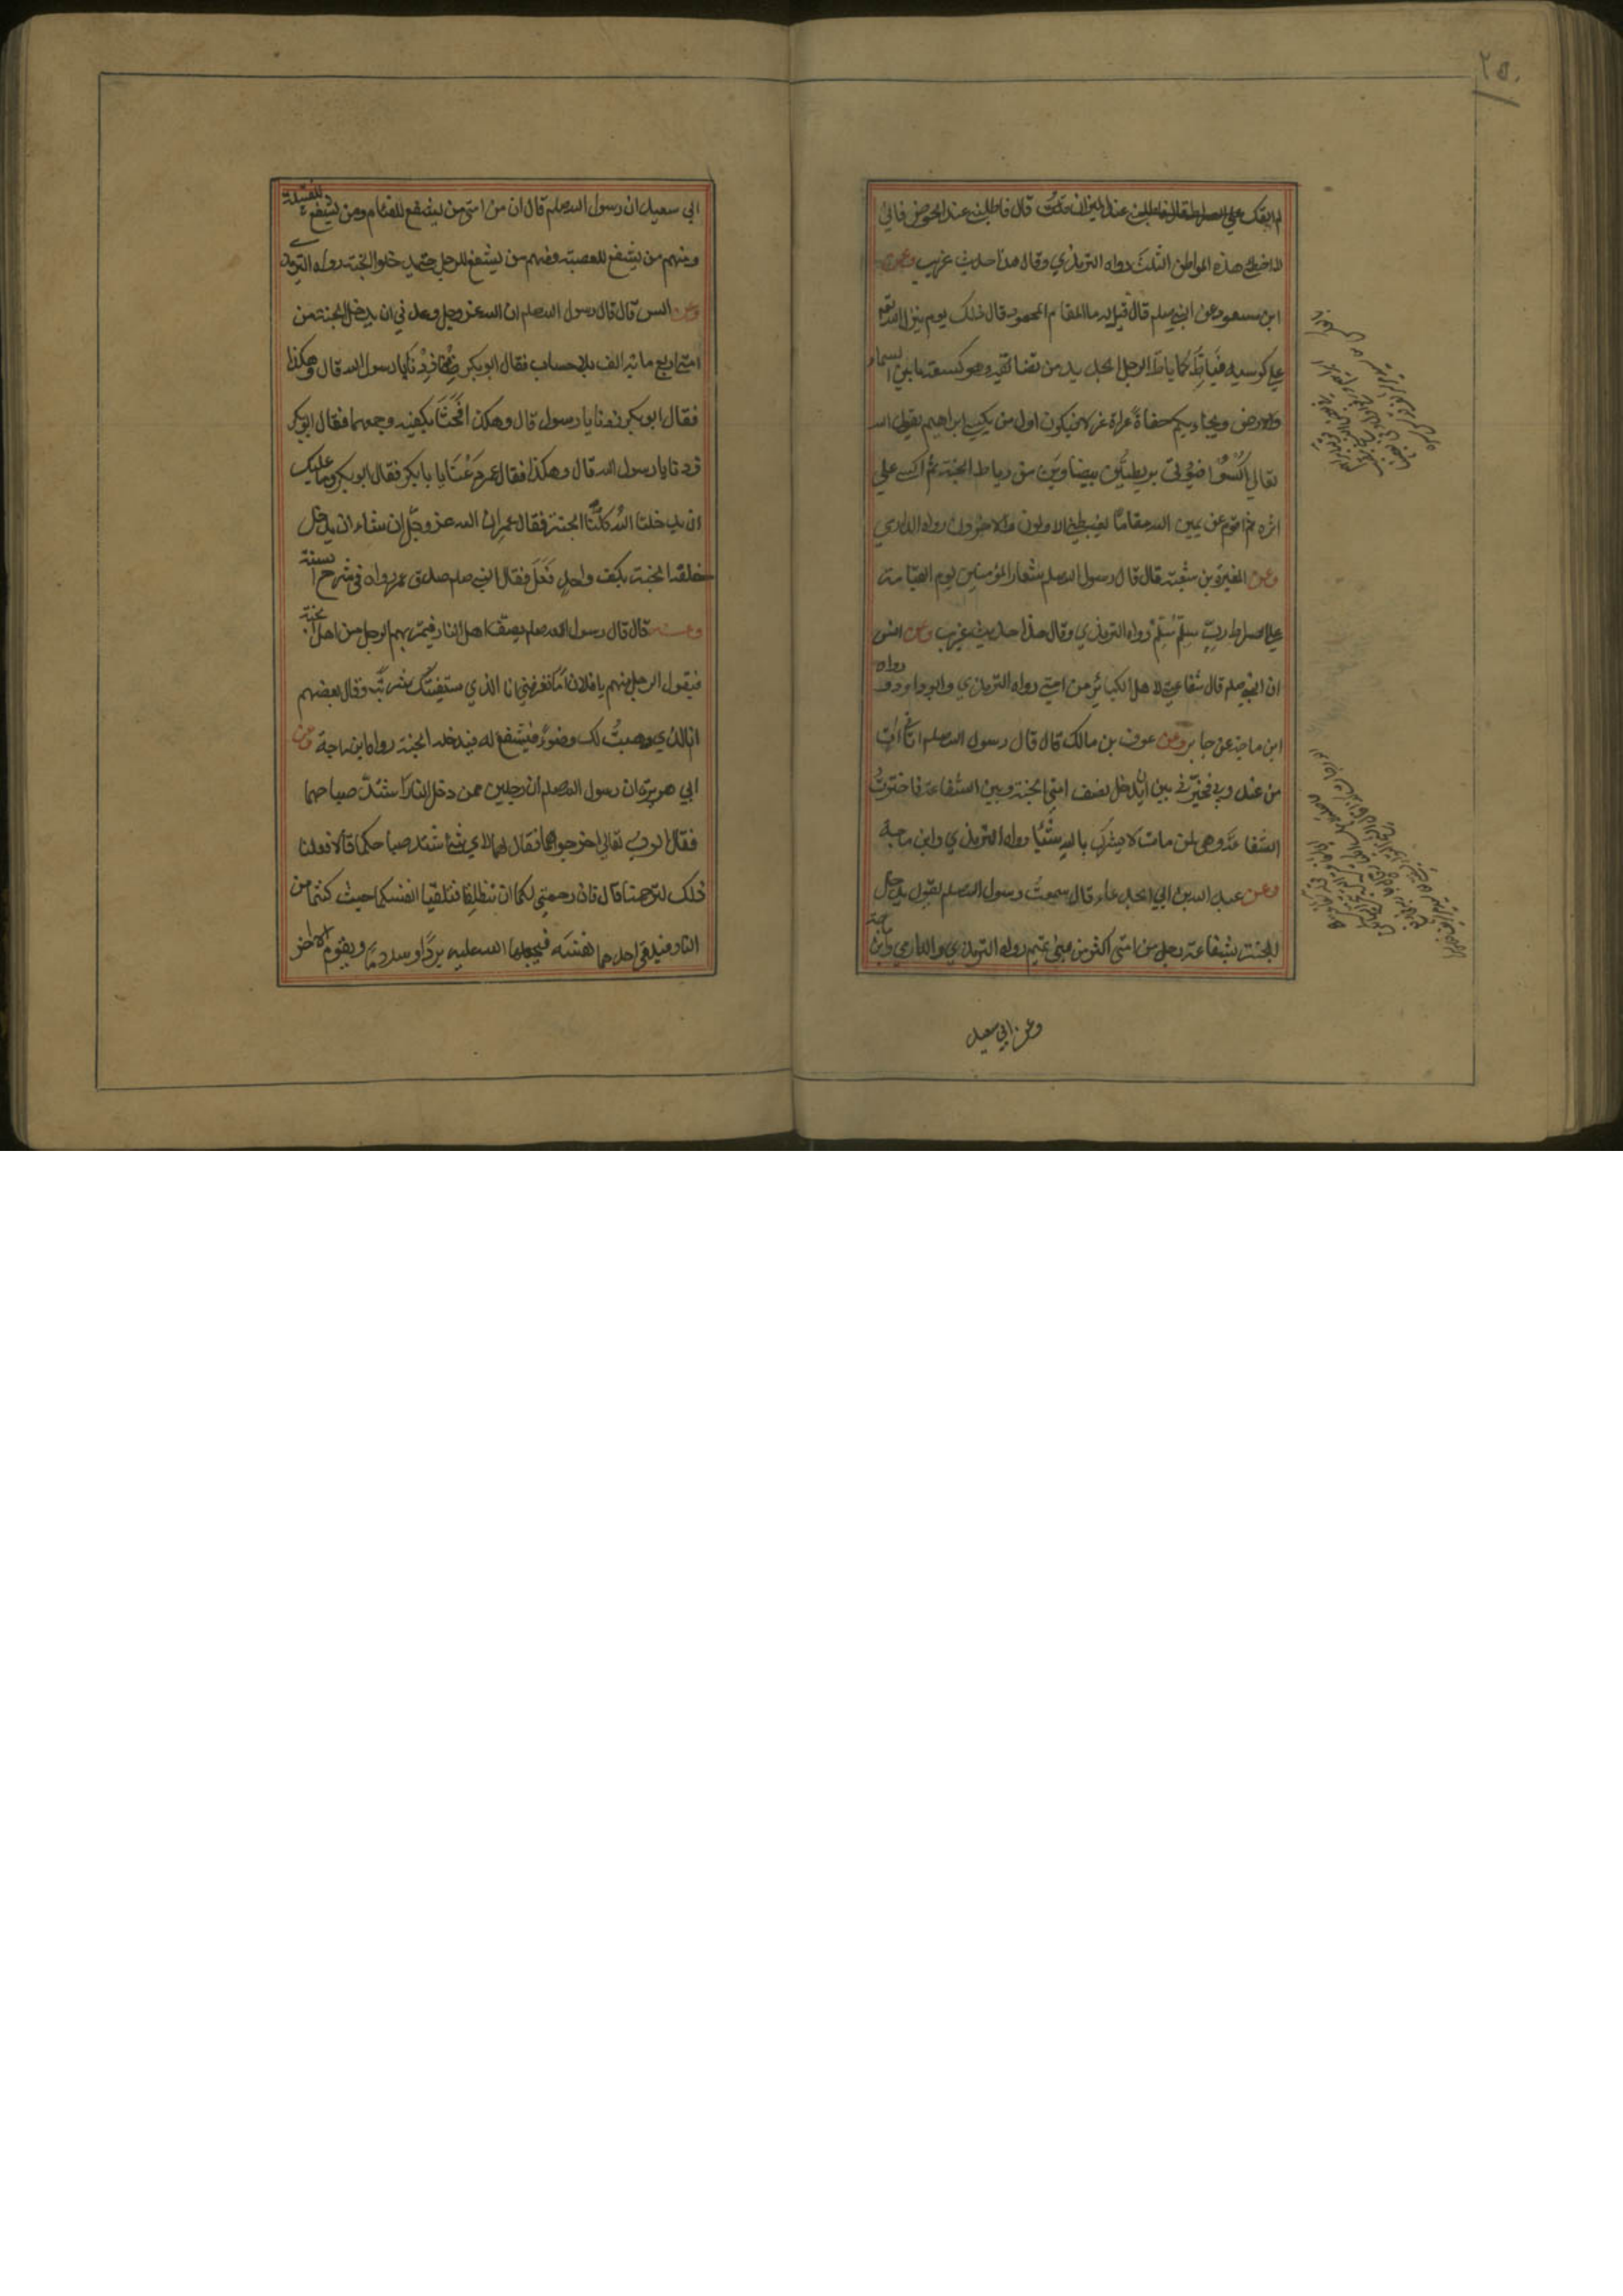 ٢٥٠
لم القك على الصراط قال فاطلبني عند الميزان قلت قال فاطلبني عند الحوض فاني
لا اخطي هذه المواطن الثلث رواه الترمذي وقال هذا حديث غريب وعن
ابن مسعود عن النبي صلعم قال قيل له ما المقام المحمود قال ذلك يوم ينزل الله تعالى
على كرسيه فيَاطّ كما ياطّ الرحل الجديد من تضايقه وهو كسعة ما بين السماء
والارض ويجاء بكم حفاة عراة غرلا فيكون اول من يكسى ابراهيم يقول الله
تعالى اكسُوا خليلي بريطتين بيضاوين من رياط الجنة ثم اكسى على
اثره ثم اقوم عن يمين الله مقاما يغبطني الاولون والاخرون رواه الدارمي
وعن المغيرة بن شعبة قال قال رسول الله صلعم شعار المؤمنين يوم القيامة
على الصراط ربّ سلّم سلّم رواه الترمذي وقال هذا حديث غريب وعن انس
ان النبي صلعم قال شفاعتي لاهل الكبائر من امتي رواه الترمذي وابو داود و رواه
ابن ماجة عن جابر وعن عوف بن مالك قال قال رسول الله صلعم اتاني اتٍ
من عند ربي فخيّرني بين ان يدخل نصف امتي الجنة وبين الشفاعة فاخترتُ
الشفاعة وهي لمن مات لا يشرك بالله شيئا رواه الترمذي وابن ماجة
وعن عبد الله بن ابي الجدعاء قال سمعت رسول الله صلعم يقول يدخل
الجنة بشفاعة رجل من امتي اكثر من بني تميم رواه الترمذي والدارمي وابن ماجة
وعن ابي سعيد
ابي سعيد ان رسول الله صلعم قال ان من امتي من يشفع للفئام ومن يشفع للقبيلة
ومنهم من يشفع للعصبة ومنهم من يشفع للرجل حتى يدخلوا الجنة رواه الترمذي
وعن انس قال قال رسول الله صلعم ان الله عز وجل وعدني ان يدخل الجنة من
امتي اربع مائة الف بلا حساب فقال ابو بكر زدنا يا رسول الله قال وهكذا
فقال ابو بكر زدنا يا رسول قال وهكذا فحثا بكفيه وجمعهما فقال ابو بكر
زدنا يا رسول الله قال وهكذا فقال عمر دعنا يا با بكر فقال ابو بكر وما عليك
ان يدخلنا الله كلنا الجنة فقال عمر ان الله عز وجل ان شاء ان يدخل
خلقه الجنة بكف واحد فعل فقال النبي صلعم صدق عمر رواه في شرح السنة
وعنه قال قال رسول الله صلعم يصفّ اهل النار فيمرّ بهم الرجل من اهل الجنة
فيقول الرجل منهم يا فلان اما تعرفني انا الذي سقيتك شربة وقال بعضهم
انا الذي وهبتُ لك وضوء فيشفع له فيدخله الجنة رواه ابن ماجة وعن
ابي هريرة ان رسول الله صلعم ان رجلين ممن دخل النار اشتد صياحهما
فقال الرب تعالى اخرجوهما فقال لهما لاي شئ اشتد صياحكما قالا فعلنا
ذلك لترحمنا قال فان رحمتي لكما ان تنطلقا فتلقيا انفسكما حيث كنتما من
النار فيلقي احدهما نفسه فيجعلها الله عليه بردا وسلاما ويقوم الاخر